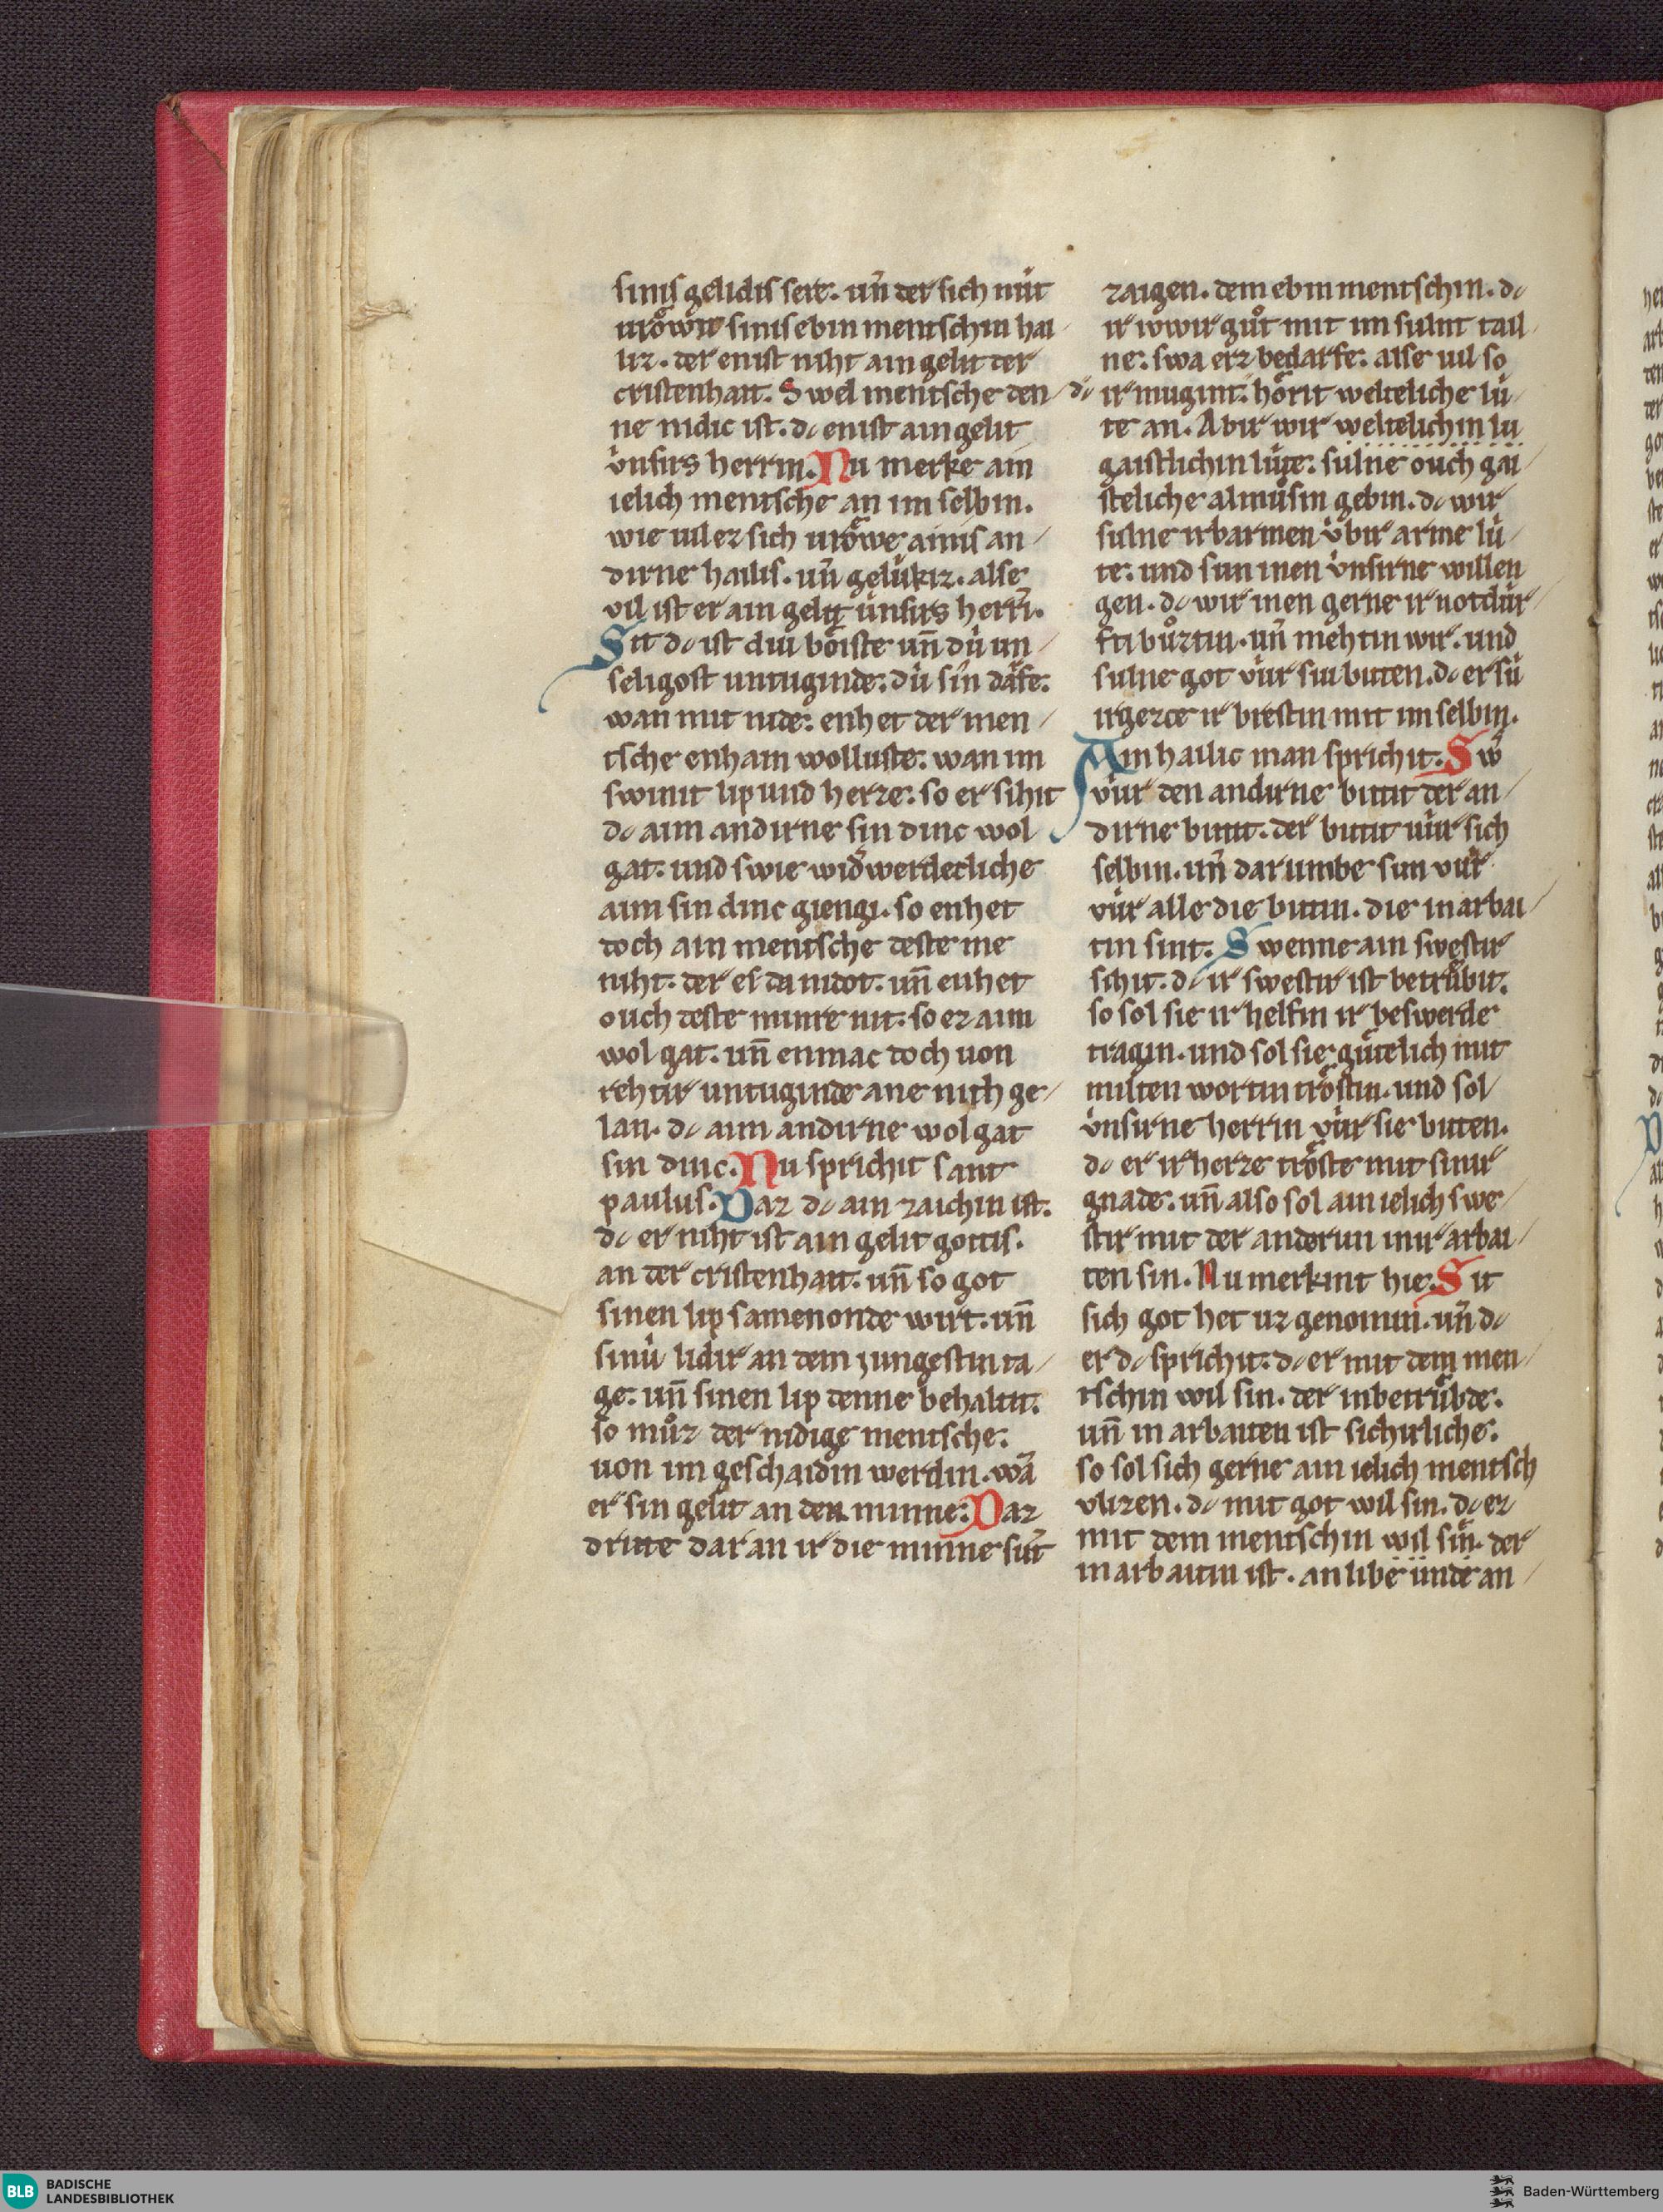 sinis gelidis seit. un̄ der sich nút
vrôwit sinis ebin mentschin hai
liz. der enist niht ain gelit der
cristenhait. Swel mentsche den
ne nidic ist. dc enist ain gelit
v́nsirs herrin. Nu merke ain
ielich mentsche an im selbin.
wie uil ez sich vrôwe ainis an
dirne hailis. un̄ gelúkiz. alse
vil ist er ain gelit únsirs herrī.
Sit dc ist diu bôiste un̄ dú un
seligost untuginde: dú sin dáfe:
wan mit nide: enhet der men
tsche enhain wolluste: wan im
swinit lip und herze: so er sihit
dc aim andirne sin dinc wol
gat: und swie wid̓werdecliche
aim sin dinc giengi. so enhet
doch ain mentsche deste me
niht: der es da nidot: un̄ enhet
ouch deste minre nit: so ez aim
wol gat: un̄ enmac doch uon
rehtir untuginde ane nith ge
lan. dc aim andirne wol gat
sin dinc. Nu sprichit sant
paulus. Daz dc ain zaichin ist.
dc er niht ist ain gelit gottis.
an der cristenhait: un̄ so got
sinen lip samenonde wirt: un̄
sinú lidir an dem jungestin ta
ge: un̄ sinen lip denne behaltit:
so mů̊z der nidige mentsche:
uon im geschaidin werdin. wā
er sin gelit an den minne: Daz
dritte dar an ir die minne sút
zaigen. dem ebin mentschin. dc
ir iwir gůt mit im sulnt tail
ne: swa erz bedarfe: alse uil so
dc ir mugint: hôrit welteliche lú
te an. Abir wir weltelichin lu
gaistlichin lúte: sulne ouch gai
steliche almůsin gebin. dc wir
sulne irbarmen v́bir arme lú
te: und sun inen v́nsirne willen
gen. dc wir inen gerne ir notdúr
fti bůztin. un̄ mehtin wir. und
sulne got vúr siu bitten. dc er sú
irgezce ir brestin mit im selbin.
Ain hailic man sprichit: Sw̓
vúr den andirne bittit der an
dirne bittit. der bittit vúr sich
selbin. un̄ dar umbe sun vúr
vúr alle die bittin. die in arbai
tin sint. Swenne ain swestir
sihit. dc ir swestir ist betrůbit.
so sol sie ir helfin ir beswerde
tragin. und sol sie gůtelich mit
milten wortin trôstin. und sol
v́nsirne herrin vúr sie bitten.
dc er ir herze trôste mit sinir
gnade: un̄ also sol ain ielich swe
stir mit der anderun inir arbai
ten sin. Nu merkint hie: Sit
sich got het uz genomin. un̄ dc
er dc sprichit: dc er mit dem men
tschin wil sin. der inbetrůbde:
un̄ in arbaiten ist sichirliche:
so sol sich gerne ain ielich mentsch
vlizen. dc mit got wil sin. dc er
mit dem mentschin wil sin. der
in arbaitin ist. an libe únde an
BLB BADISCHE
LANDESBIBLIOTHEK
Baden-Württemberg